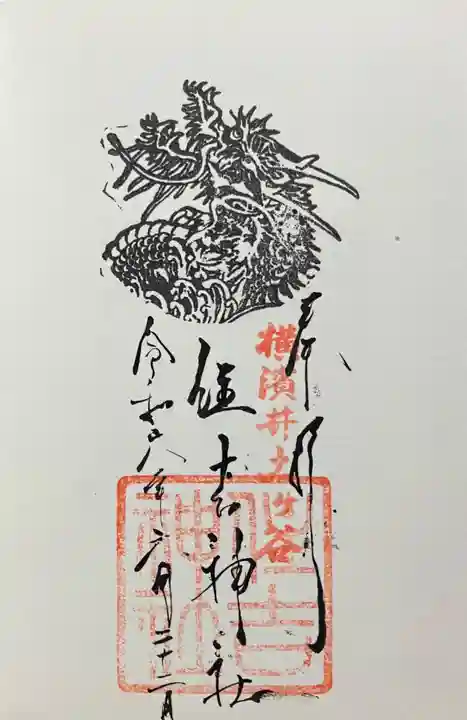 奉拝
横濱井土ヶ谷
住吉神社
令和六年六月二十二日